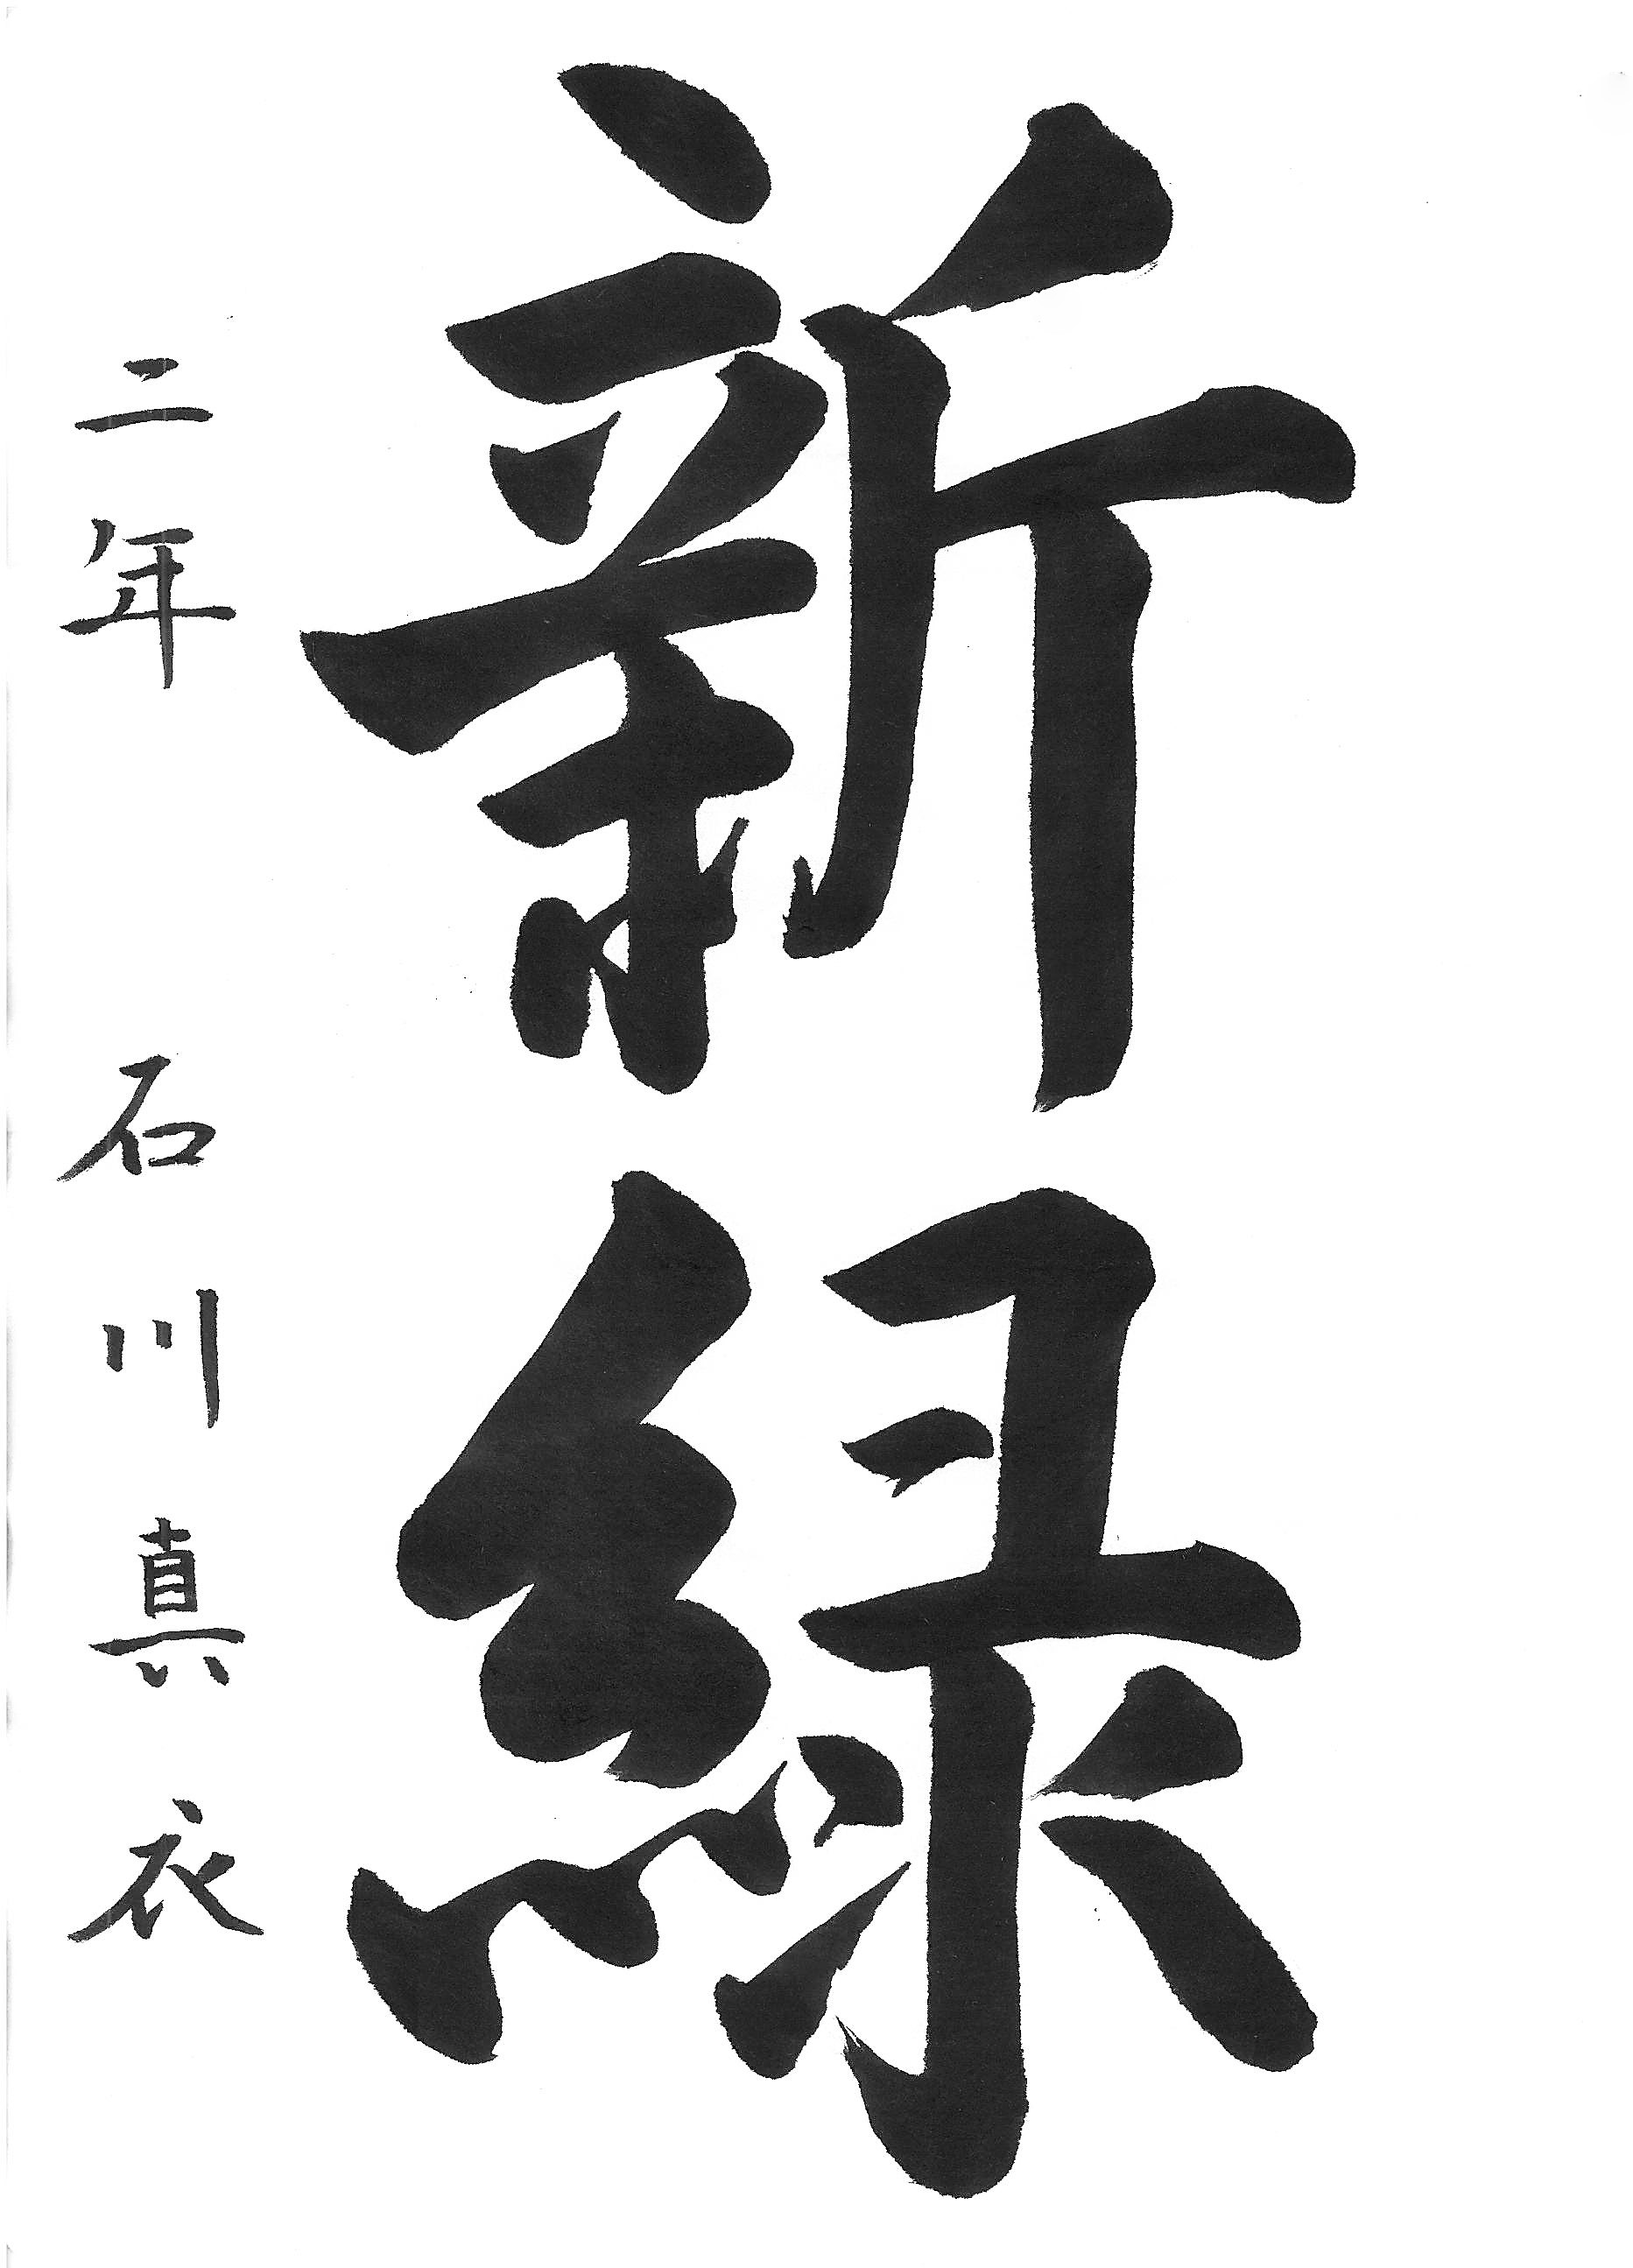 新緑
二年 石川真衣